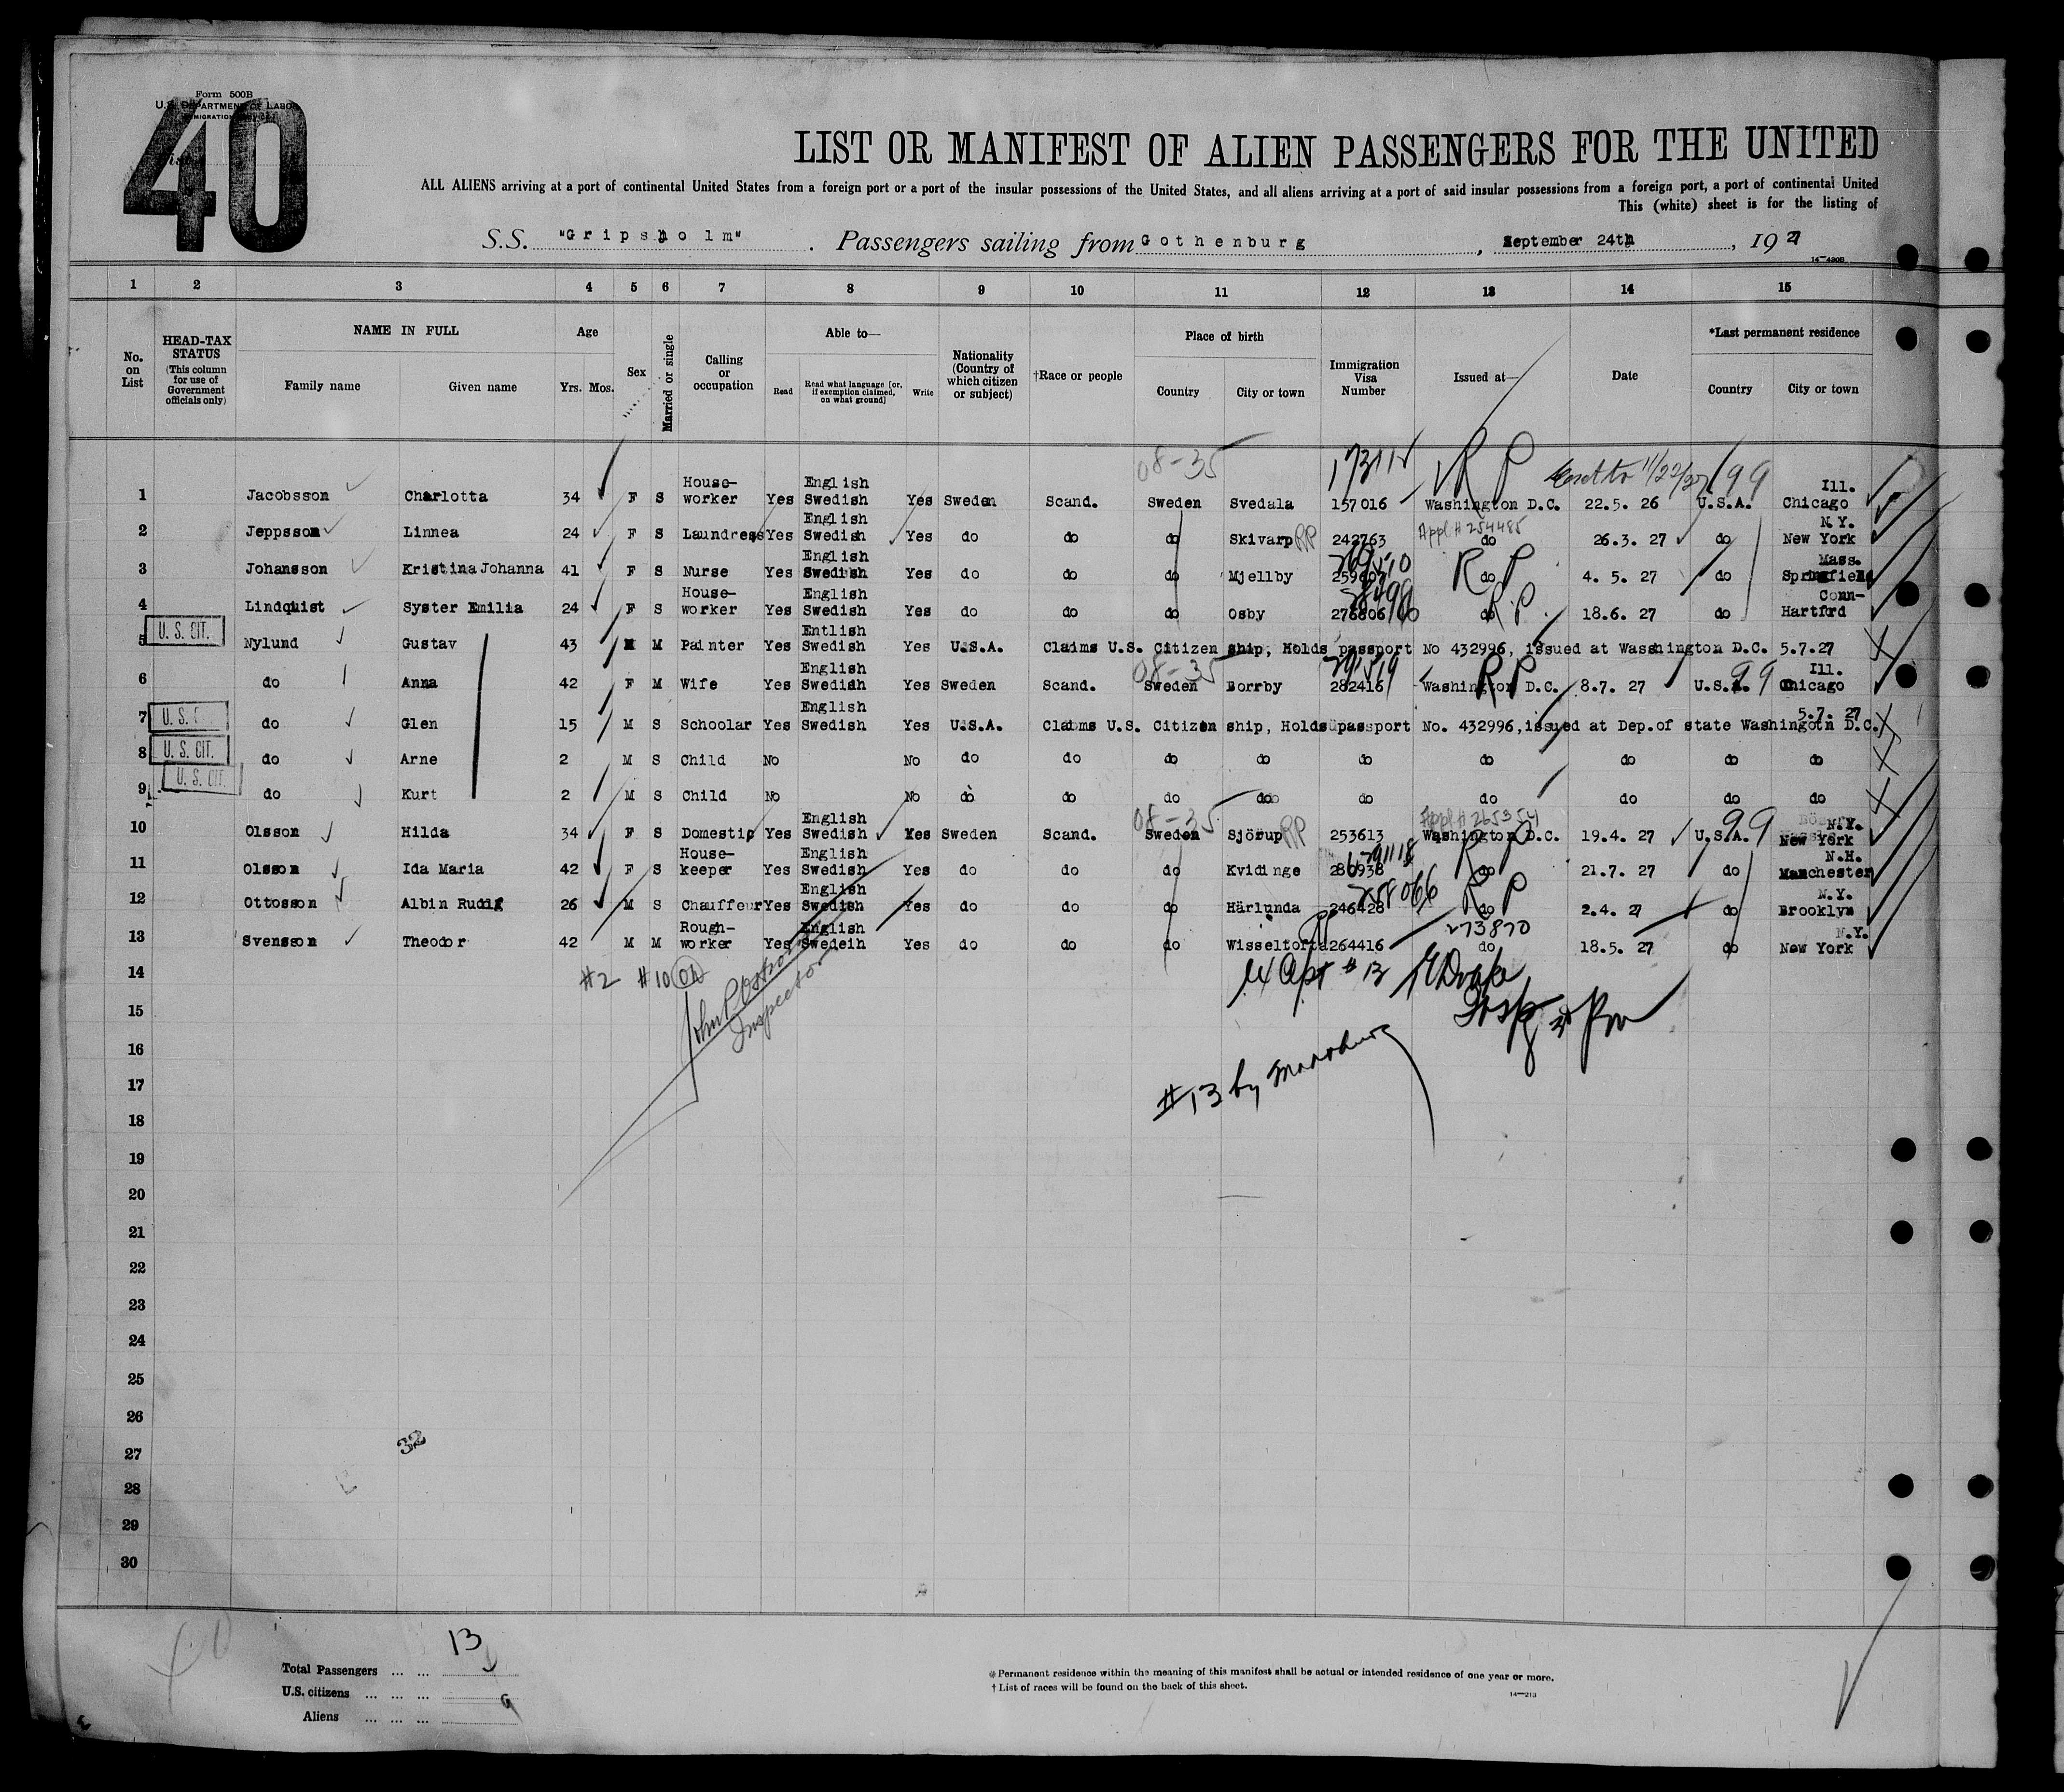 Form 500B
U.S. DEPARTMENT OF LABOR
IMMIGRATION SERVICE
40
List
LIST OR MANIFEST OF ALIEN PASSENGERS FOR THE UNITED
ALL ALIENS arriving at a port of continental United States from a foreign port or a port of the insular possessions of the United States, and all aliens arriving at a port of said insular possessions from a foreign port, a port of continental United
This (white) sheet is for the listing of
S.S. "Gripsholm". Passengers sailing from Gothenburg, September 24th, 1927
14—430B
1 2 3 4 5 6 7 8 9 10 11 12 13 14 15
No. on List
HEAD-TAX STATUS (This column for use of Government officials only)
NAME IN FULL
Family name Given name
Age
Yrs. Mos.
Sex
Married or single
Calling or occupation
Able to—
Read Read what language [or, if exemption claimed, on what ground] Write
Nationality (Country of which citizen or subject)
†Race or people
Place of birth
Country City or town
Immigration Visa Number
Issued at—
Date
*Last permanent residence
Country City or town
08-35 173115 RP 11/22/27 99
1 Jacobsson Charlotta 34 F S House-worker Yes English Swedish Yes Sweden Scand. Sweden Svedala 157016 Washington D.C. 22.5. 26 U.S.A. Ill. Chicago
2 Jeppsson Linnea 24 F S Laundress Yes English Swedish Yes do do do Skivarp RP 242763 Appl # 254485 do 26.3. 27 do N.Y. New York
3 Johansson Kristina Johanna 41 F S Nurse Yes English Swedish Yes do do do Mjellby do RP 4. 5. 27 do Mass. Springfield
4 Lindquist Syster Emilia 24 F S House-worker Yes English Swedish Yes do do do Osby 276806 do RP 18.6. 27 do Conn- Hartford
U. S. CIT.
5 Nylund Gustav 43 M M Painter Yes Entlish Swedish Yes U.S.A. Claims U.S. Citizen ship, Holds passport No 432996, issued at Wasshington D.C. 5.7.27
08-35 RP 99
6 do Anna 42 F M Wife Yes English Swedish Yes Sweden Scand. Sweden Borrby 282416 Washington D.C. 8.7. 27 U.S.A. Ill. Chicago
U. S. C
7 do Glen 15 M S Schoolar Yes English Swedish Yes U.S.A. Claims U.S. Citizen ship, Holds passport No. 432996, issued at Dep.of state Washingotn D.C. 5.7. 27
U. S. CIT.
8 do Arne 2 M S Child No No do do do do do do do do do
U. S. CIT.
9 do Kurt 2 M S Child No No do do do do do do do do do
08-35 Appl # 265354 99
10 Olsson Hilda 34 F S Domestic Yes English Swedish Yes Sweden Scand. Sweden Sjörup RP 253613 Washington D.C. 19.4. 27 U.S.A. N.Y. New York
11 Olsson Ida Maria 42 F S House-keeper Yes English Swedish Yes do do do Kvidinge 286938 do RP 21.7. 27 do N.H. Manchester
12 Ottosson Albin Rudilf 26 M S Chauffeur Yes English Swedish Yes do do do Härlunda 246428 258066 do RP 2.4. 27 do N.Y. Brooklyn
13 Svensson Theodor 42 M M Rough-worker Yes English Swedein Yes do do do Wisseltofta 264416 273870 do 18.5. 27 do N.Y. New York
14
#2 #10 OK
Inspector
# 13
15
16
#13 by
17
18
19
20
21
22
23
24
25
26
32
27
28
29
30
13
Total Passengers
U.S. citizens
Aliens
*Permanent residence within the meaning of this manifest shall be actual or intended residence of one year or more.
†List of races will be found on the back of this sheet.
14—213